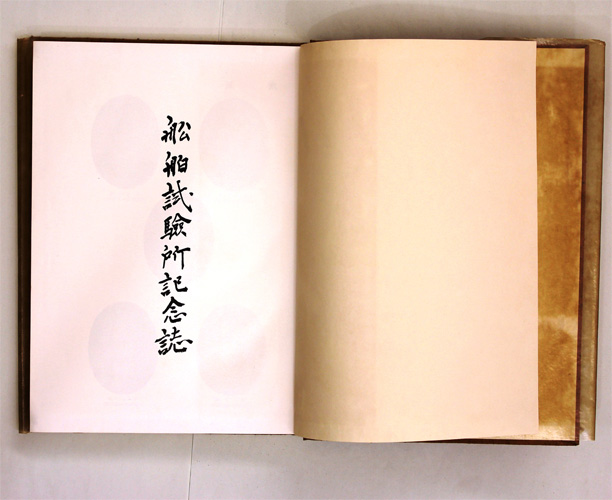 舩舶試驗所記念誌